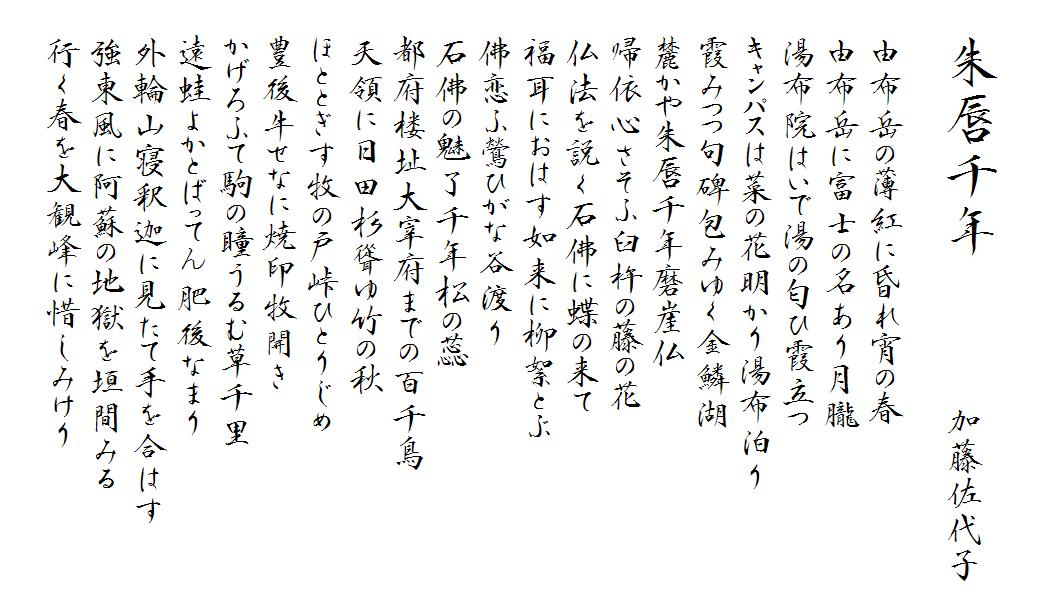 朱唇千年
加藤佐代子
由布岳の薄紅に昏れ宵の春
由布岳に富士の名あり月朧
湯布院はいで湯の匂ひ霞立つ
キャンパスは菜の花明かり湯布泊り
霞みつつ句碑包みゆく金鱗湖
麓かや朱唇千年磨崖仏
帰依心さそふ臼杵の藤の花
仏法を説く石佛に蝶の来て
福耳におはす如来に柳絮とぶ
佛恋ふ鶯ひがな谷渡り
石佛の魅了千年松の蕊
都府楼址大宰府までの百千鳥
天領に日田杉聳ゆ竹の秋
ほととぎす牧の戸峠ひとりじめ
豊後牛せなに焼印牧開き
かげろふて駒の瞳うるむ草千里
遠蛙よかとばってん肥後なまり
外輪山寝釈迦に見たて手を合はす
強東風に阿蘇の地獄を垣間みる
行く春を大観峰に惜しみけり